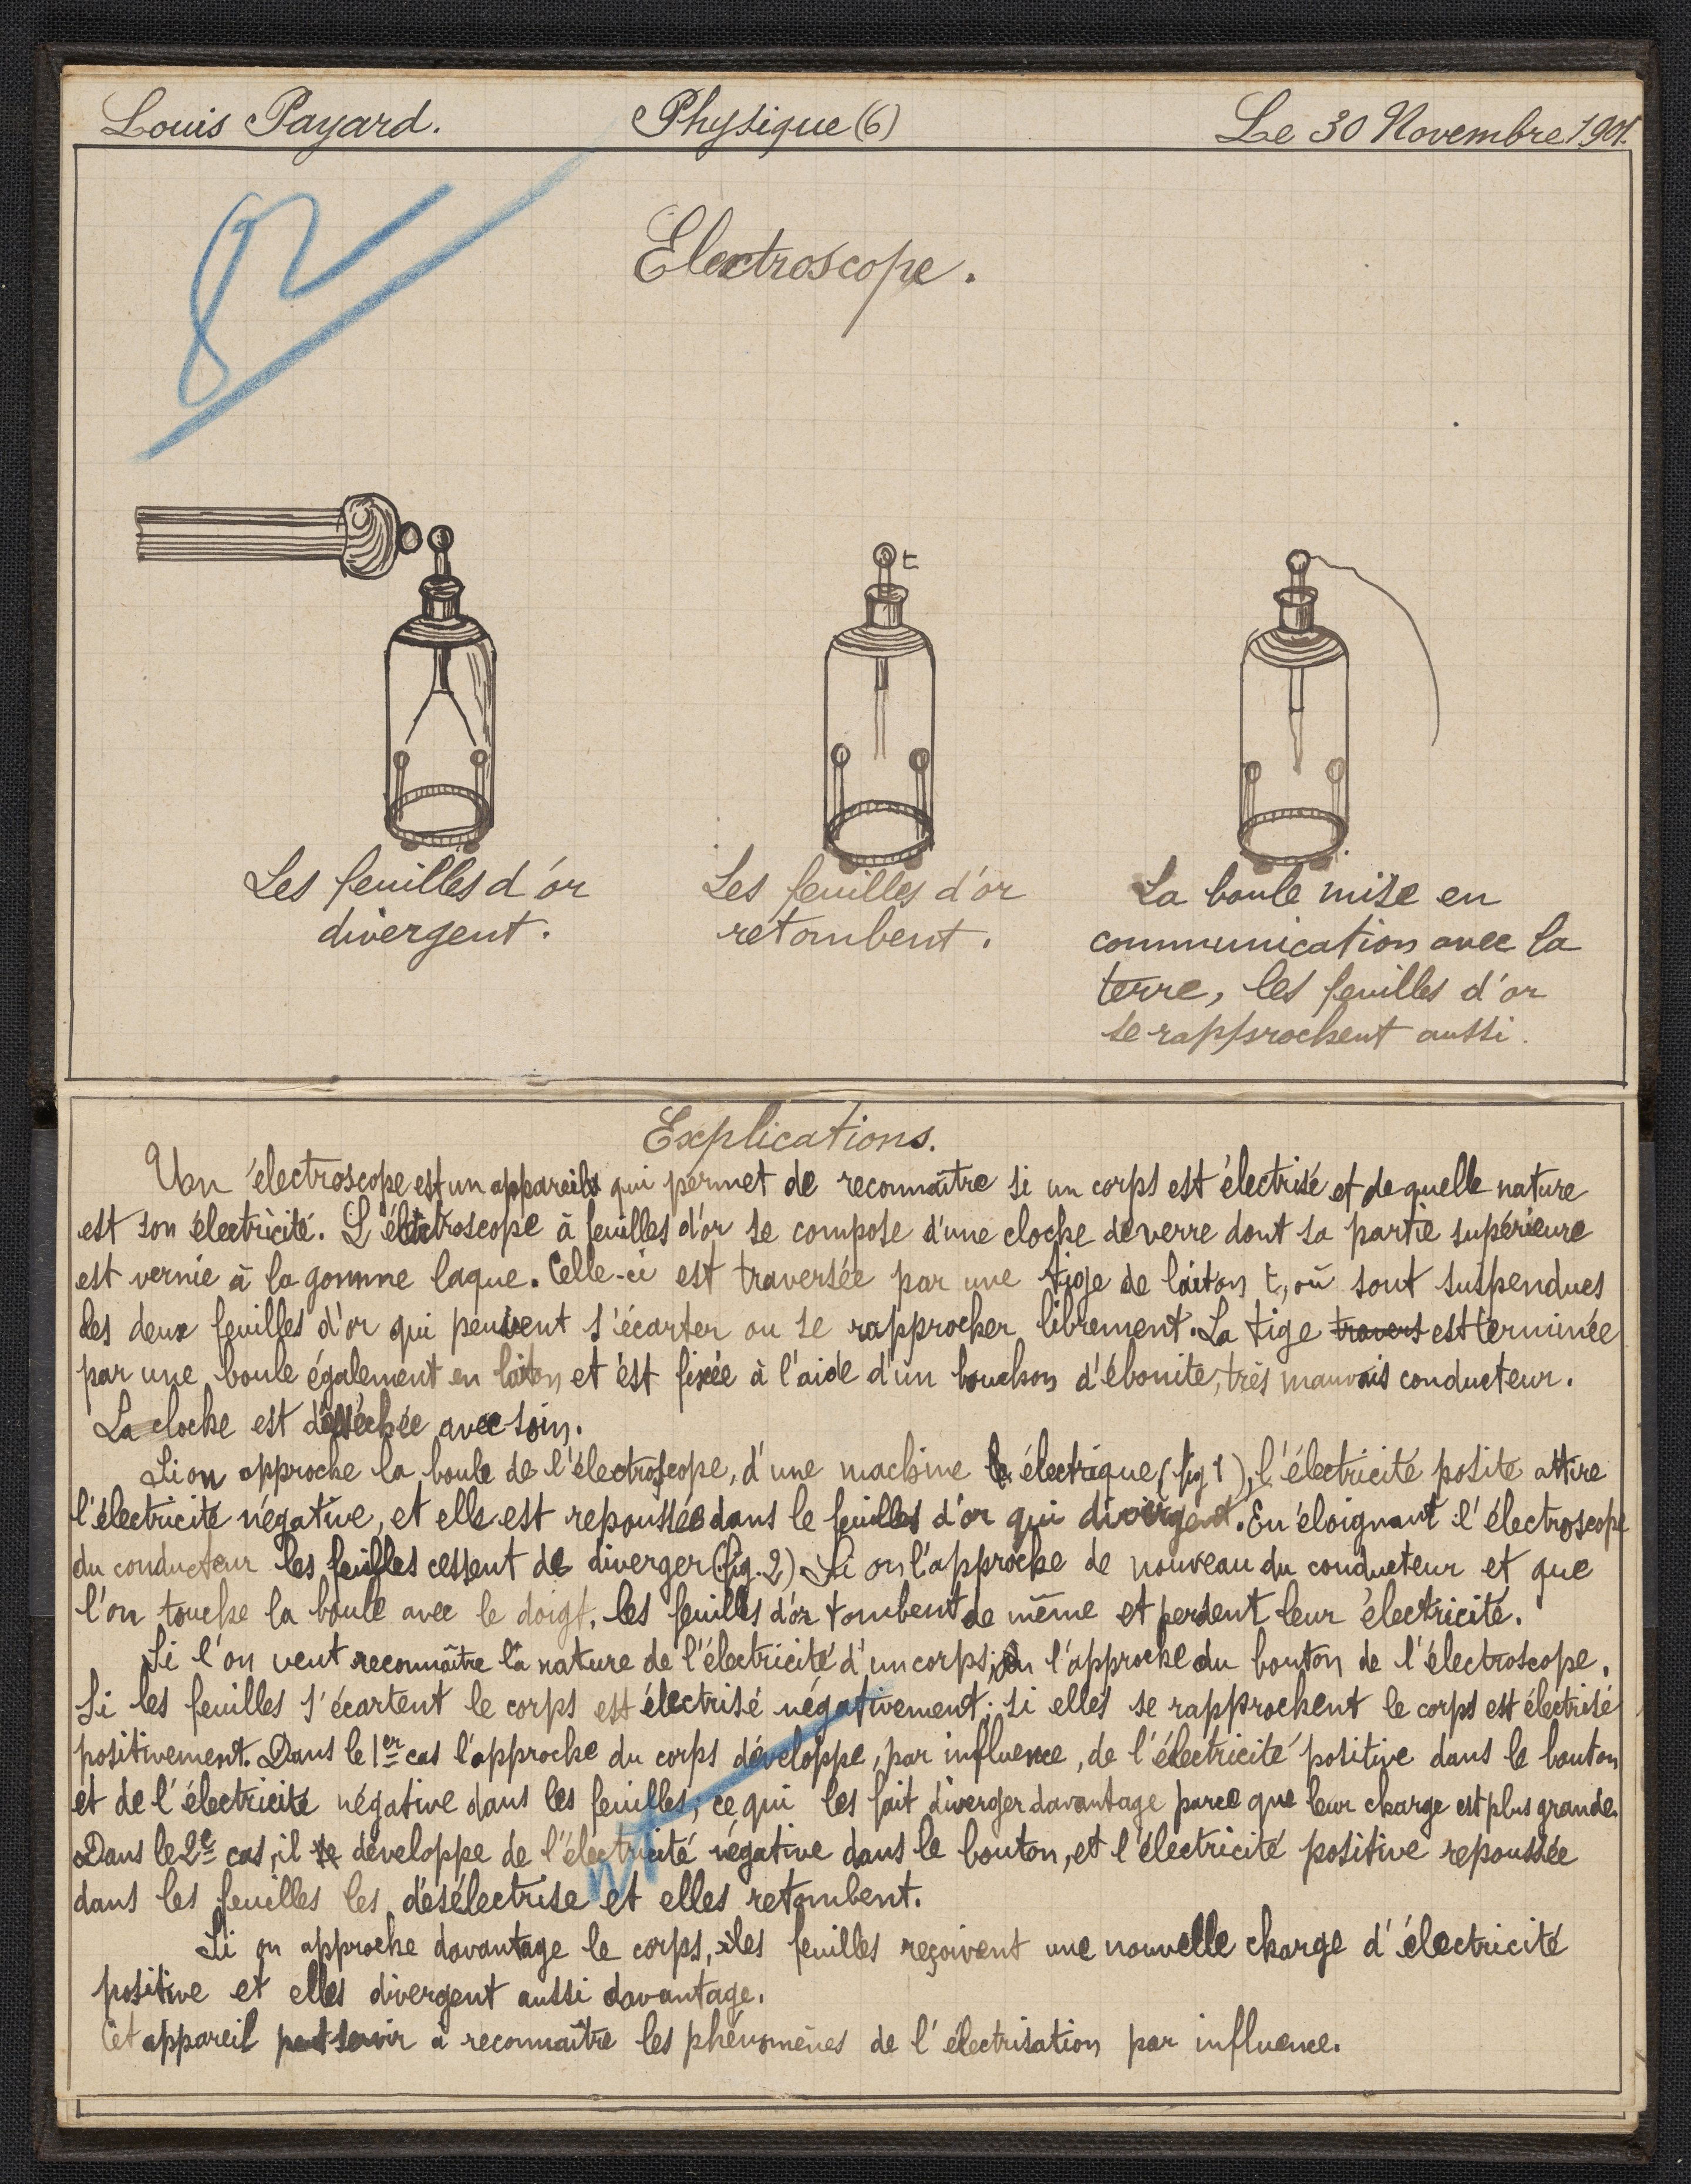 Louis Payard. Physique (6) Le 30 Novembre 1901.
Electroscope.
t
Les feuilles d'or
divergent.
Les feuilles d'or
retombent.
La boule mise en
communication avec la
terre, les feuilles d'or
se rapprochent aussi.
Explications.
Un électroscope est un appareil qui permet de reconnaître si un corps est électrisé et de quelle nature
est son électricité. L'électroscope à feuilles d'or se compose d'une cloche de verre dont sa partie supérieure
est vernie à la gomme laque. Celle-ci est traversée par une tige de laiton t, où sont suspendues
les deux feuilles d'or qui peuvent s'écarter ou se rapprocher librement. La tige travers est terminée
par une boule également en laiton et est fixée à l'aide d'un bouchon d'ébonite, très mauvais conducteur.
La cloche est desséchée avec soin.
Si on approche la boule de l'électroscope, d'une machine électrique (fig 1), l'électricité posite attire
l'électricité négative, et elle est repoussée dans le feuilles d'or qui divergent. En éloignant l'électroscope
du conducteur les feuilles cessent de diverger (fig. 2) Si on l'approche de nouveau du conducteur et que
l'on touche la boule avec le doigt, les feuilles d'or tombent de même et perdent leur électricité.
Si l'on veut reconnaître la nature de l'électricité d'un corps, on l'approche du bouton de l'électroscope.
Si les feuilles s'écartent le corps est électrisé négativement; si elles se rapprochent le corps est électrisé
positivement. Dans le 1er cas l'approche du corps développe, par influence, de l'électricité positive dans le bouton
et de l'électricité négative dans les feuilles; ce qui les fait diverger davantage parce que leur charge est plus grande.
Dans le 2e cas, il se développe de l'électricité négative dans le bouton, et l'électricité positive repoussée
dans les feuilles les désélectrise et elles retombent.
Si on approche davantage le corps, les feuilles reçoivent une nouvelle charge d'électricité
positive et elles divergent aussi davantage.
Cet appareil peut servir à reconnaître les phénomènes de l'électrisation par influence.